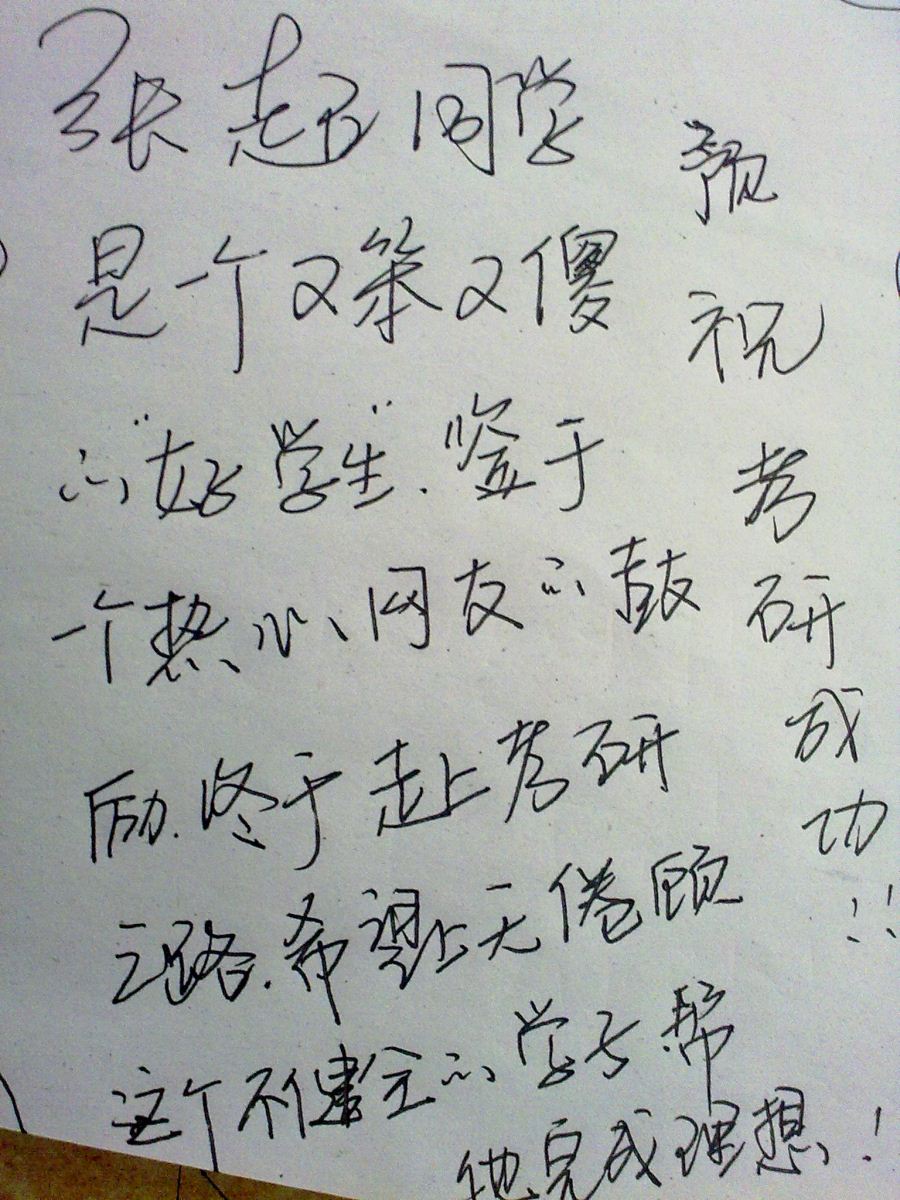 张起同学
是个又笨又傻
的“好学生”.鉴于
一个热心网友的鼓
励.终于走上考研
之路.希望上天倦顾
这个不健全的学子帮
他完成理想!
预祝考研成功!!